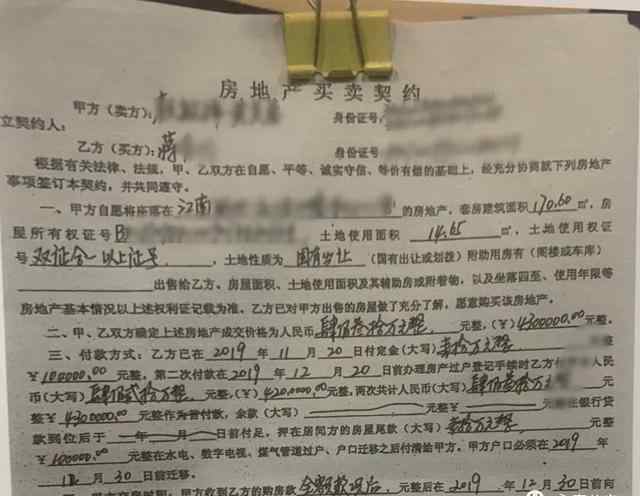 房地产买卖契约
甲方（卖方）： 身份证号：
立契约人：
乙方（买方）：蒋 身份证号
根据有关法律、法规，甲、乙双方在自愿、平等、诚实守信、等价有偿的基础上，经充分协商就下列房地产
事项签订本契约，并共同遵守。
一、甲方自愿将座落在 江南 的房地产，套房建筑面积 170.60 ㎡，房
屋所有权证号 B 土地使用面积 14.65 ㎡，土地使用权证
号 双证合一以上证号 ，土地性质为 国有出让 （国有出让或划拨）附助用房有（阁楼或车库）
出售给乙方。房屋面积、土地使用面积及其辅助房或附着物，以及坐落四至、使用年限等
房地产基本情况以上述权利证记载为准。乙方已对甲方出售的房屋做了充分了解，愿意购买该房地产。
二、甲、乙双方确定上述房地产成交价格为人民币 元整，（￥）4300000.00 元整。
三、付款方式：乙方已在 2019 年 11 月 20 日付定金（大写）壹拾万元
￥100000.00 元整，第二次付款在 2019 年 12 月 20 日前办理房产过户登记手续时乙方付 人民
币（大写） 元整，（￥）4200000.00 元整，两次共计人民币（大写）
整￥4300000.00 元整作为首付款，余款（大写） 元整￥ 元整 银行贷
款到位后于 年 月 日前付足，押在居间方的房屋尾款（大写）壹拾万元整
￥100000.00 元整在水电、数字电视、煤气管道过户、户口迁移之后付清给甲方。甲方户口必须在 2019 年
11 月 30 日前迁移。
甲方收到乙方的购房款 全额款项后 元整后在 2019 年 12 月 30 日前向